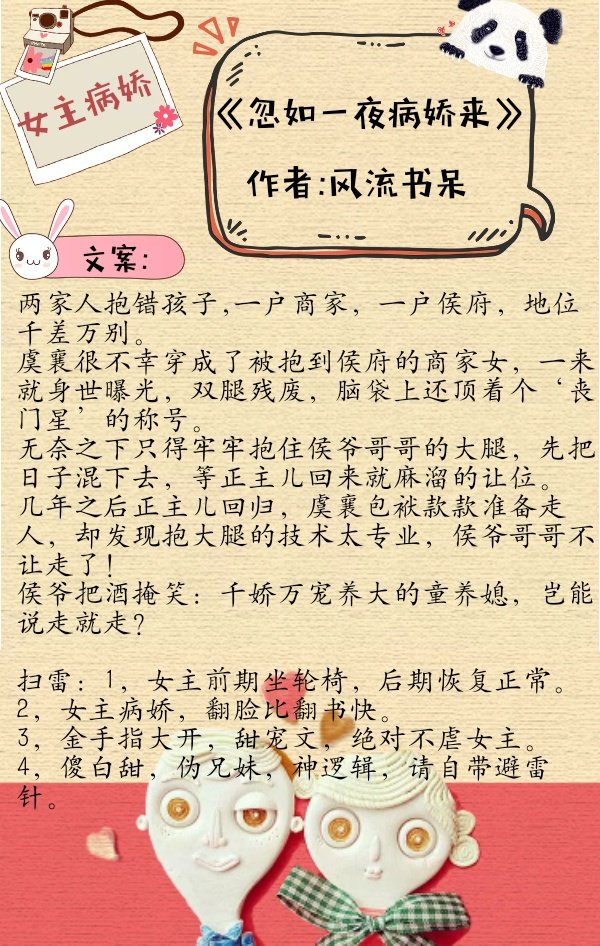 女主病娇
《忽如一夜病娇来》
作者:风流书呆
文案:
两家人抱错孩子,一户商家，一户侯府，地位
千差万别。
虞襄很不幸穿成了被抱到侯府的商家女，一来
就身世曝光，双腿残废，脑袋上还顶着个‘丧
门星’的称号。
无奈之下只得牢牢抱住侯爷哥哥的大腿，先把
日子混下去，等正主儿回来就麻溜的让位。
几年之后正主儿回归，虞襄包袱款款准备走
人，却发现抱大腿的技术太专业，侯爷哥哥不
让走了！
侯爷把酒掩笑：千娇万宠养大的童养媳，岂能
说走就走？
扫雷：1，女主前期坐轮椅，后期恢复正常。
2，女主病娇，翻脸比翻书快。
3，金手指大开，甜宠文，绝对不虐女主。
4，傻白甜，伪兄妹，神逻辑，请自带避雷
针。